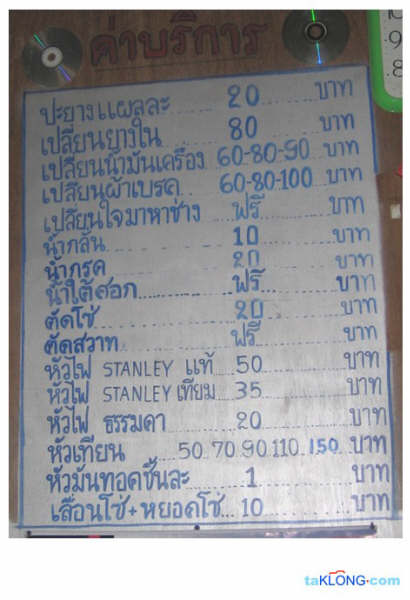 ค่าบริการ
ปะยางแผลละ 20 บาท
เปลี่ยนยางใน 80 บาท
เปลี่ยนน้ำมันเครื่อง 60-80-90 บาท
เปลี่ยนผ้าเบรค 60-80-100 บาท
เปลี่ยนใจมาหาช่าง ฟรี บาท
น้ำกลั่น 10 บาท
น้ำกรด 20 บาท
น้ำใต้ศอก ฟรี บาท
ตัดโซ่ 20 บาท
ตัดสวาท ฟรี บาท
หัวไฟ STANLEY แท้ 50 บาท
หัวไฟ STANLEY เทียม 35 บาท
หัวไฟ ธรรมดา 20 บาท
หัวเทียน 50 70 90 110 150 บาท
หัวมันทอดชิ้นละ 1 บาท
เลื่อนโซ่+หยอดโซ่ 10 บาท
taKLONG.com